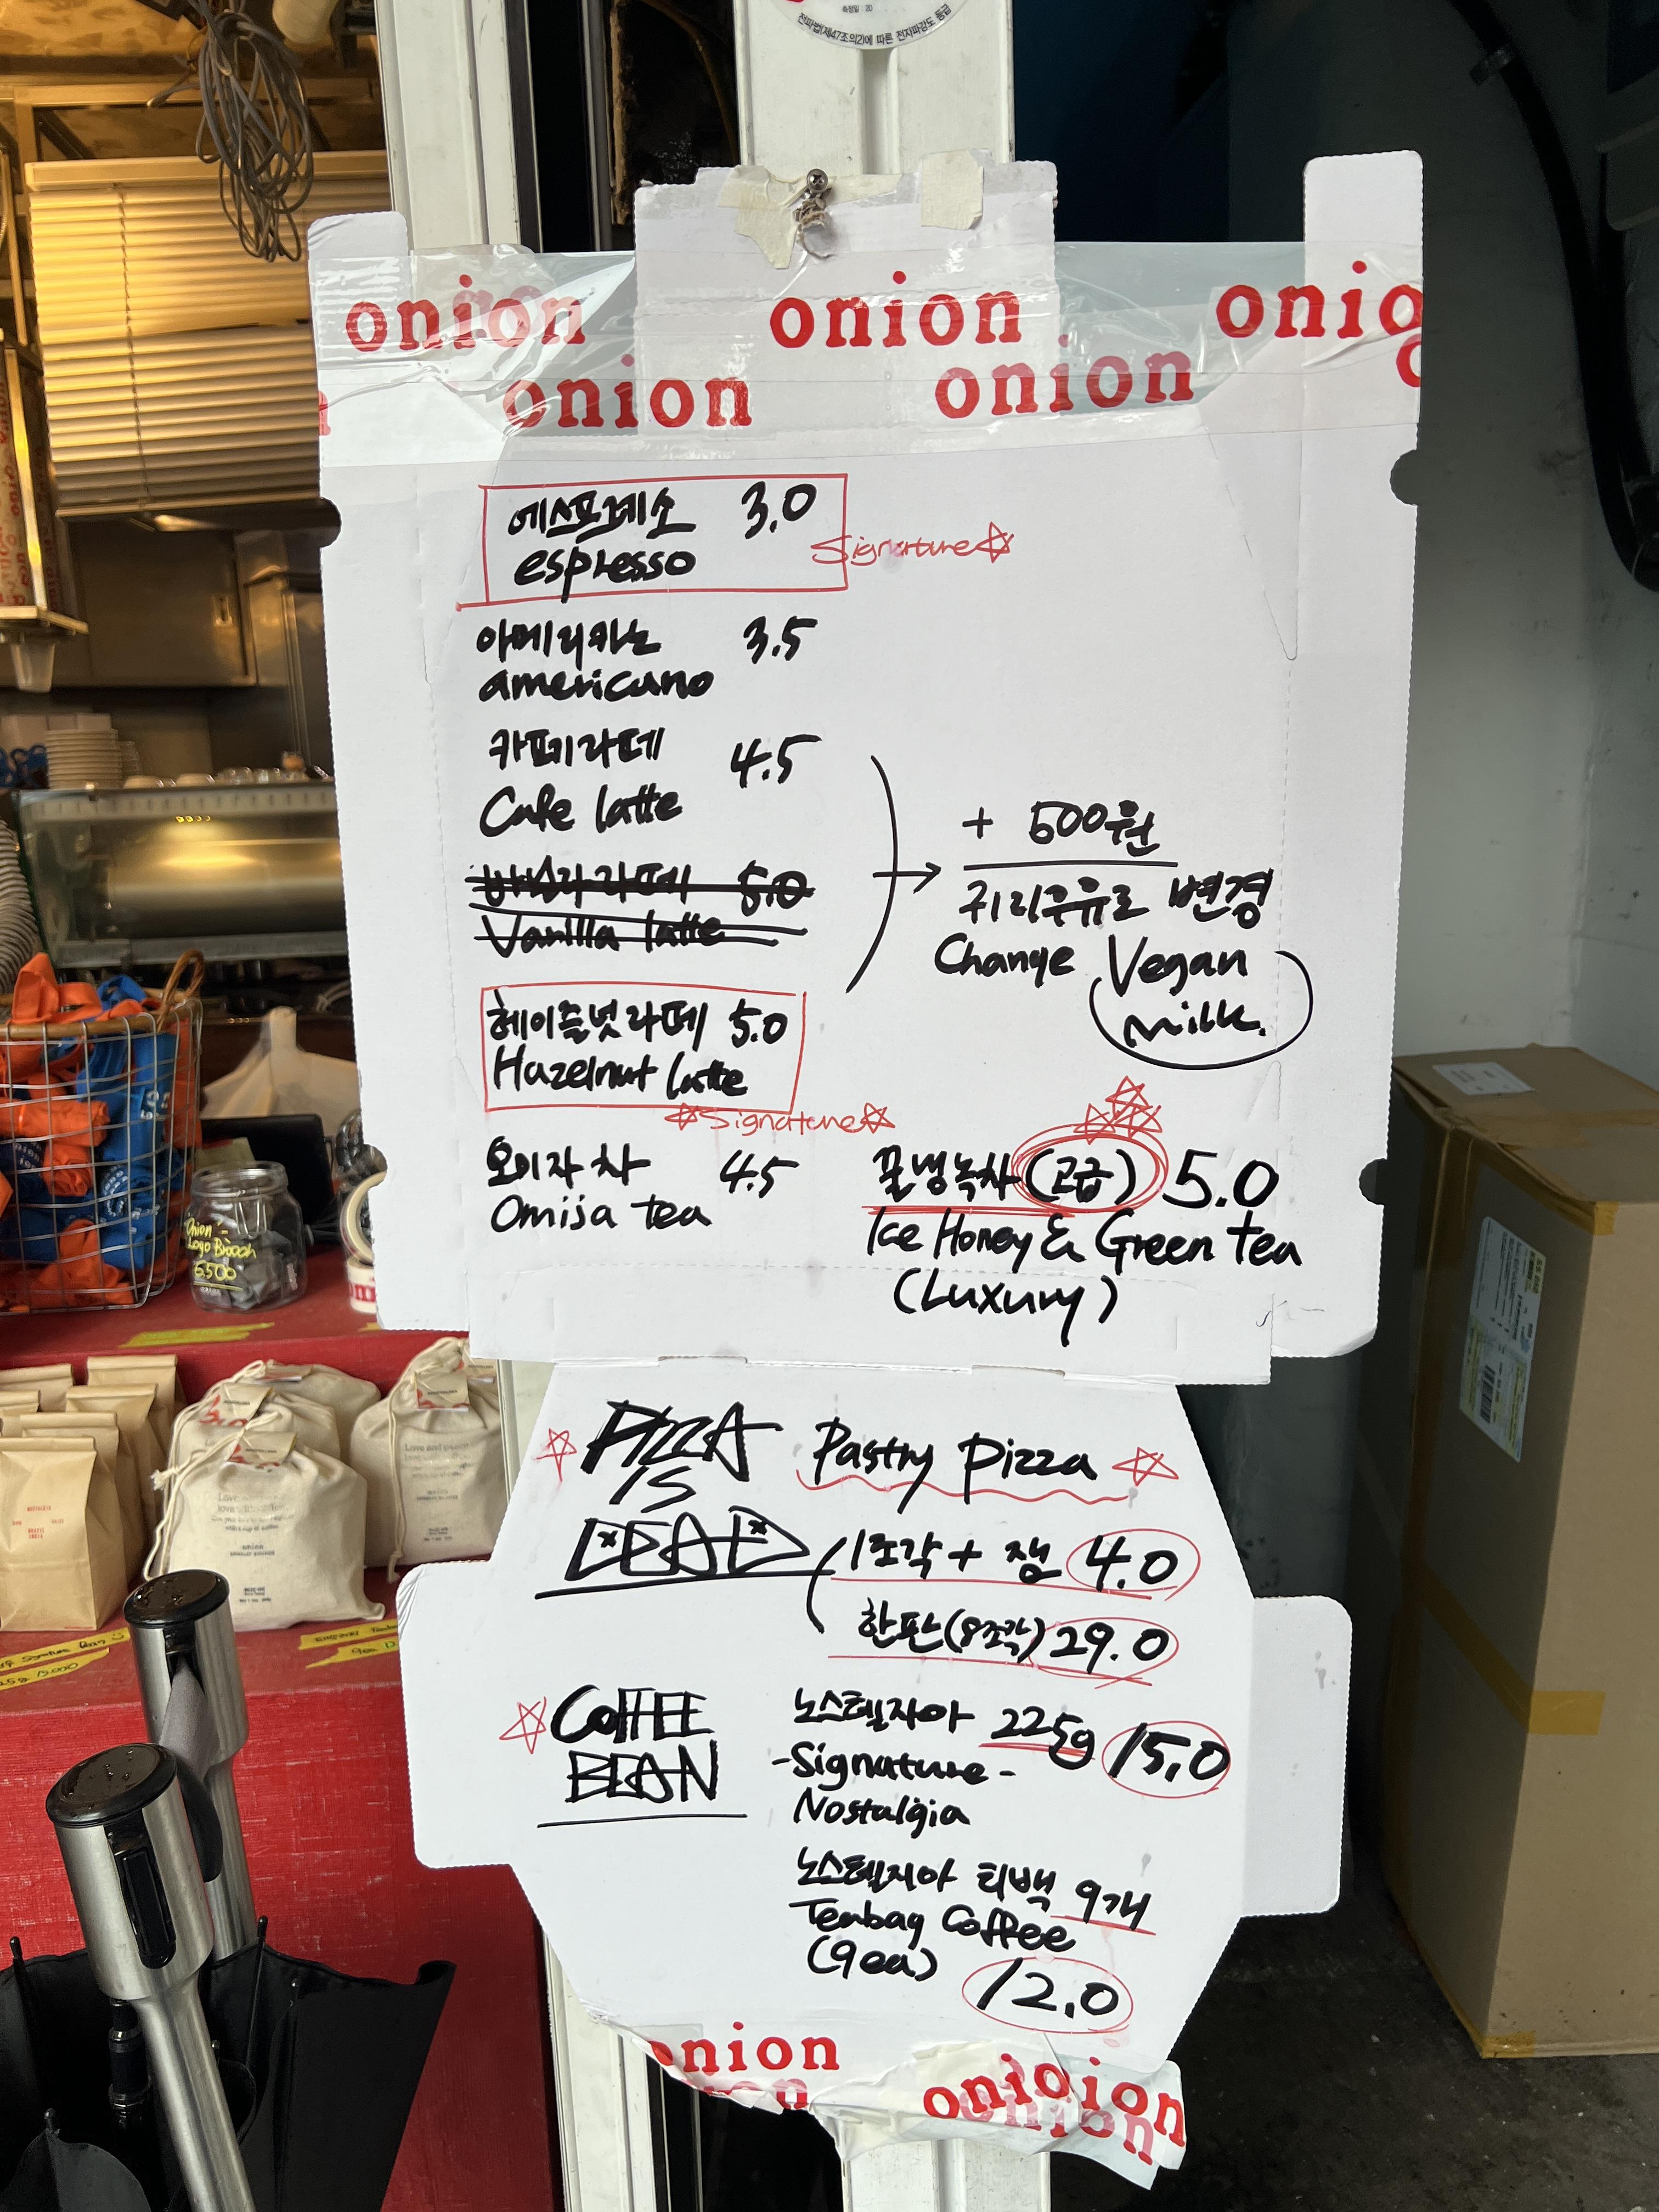 전파법(제47조의2)에 따른 전자파강도 등급
onion onion onio
onion onion
에스프레소 3.0
espresso
Signature
아메리카노 3.5
americano
카페라떼 4.5
Cafe latte
바닐라라떼 5.0
Vanilla latte
+ 500원
귀리우유로 변경
Change Vegan
Milk.
헤이즐넛라떼 5.0
Hazelnut latte
Signature
오미자차 4.5
Omija tea
꿀냉녹차 (고급) 5.0
Ice Honey & Green tea
(Luxury)
PIZZA
IS
DEAD
Pastry Pizza
1조각 + 잼 4.0
한판(8조각) 29.0
COFFEE
BEAN
노스텔지아 225g 15.0
-Signature-
Nostalgia
노스텔지아 티백 9개
Teabag Coffee
(9ea)
12.0
onion
onion
Onion
Logo Brooch
6,500